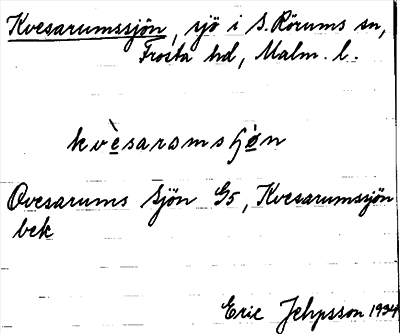 Kvesarumssjön, sjö i S. Rörums sn,
Frosta hd, Malm. l.
kvèsaramsʃö̀n
Qvesarums Sjön G5, Kvesarumssjön
bek
Eric Jehpsson 1934